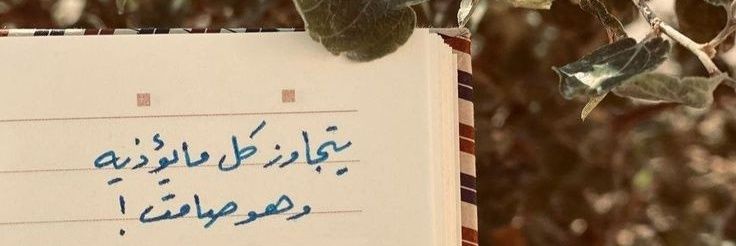 يتجاوز كل ما يؤذيه
وهو صامت !